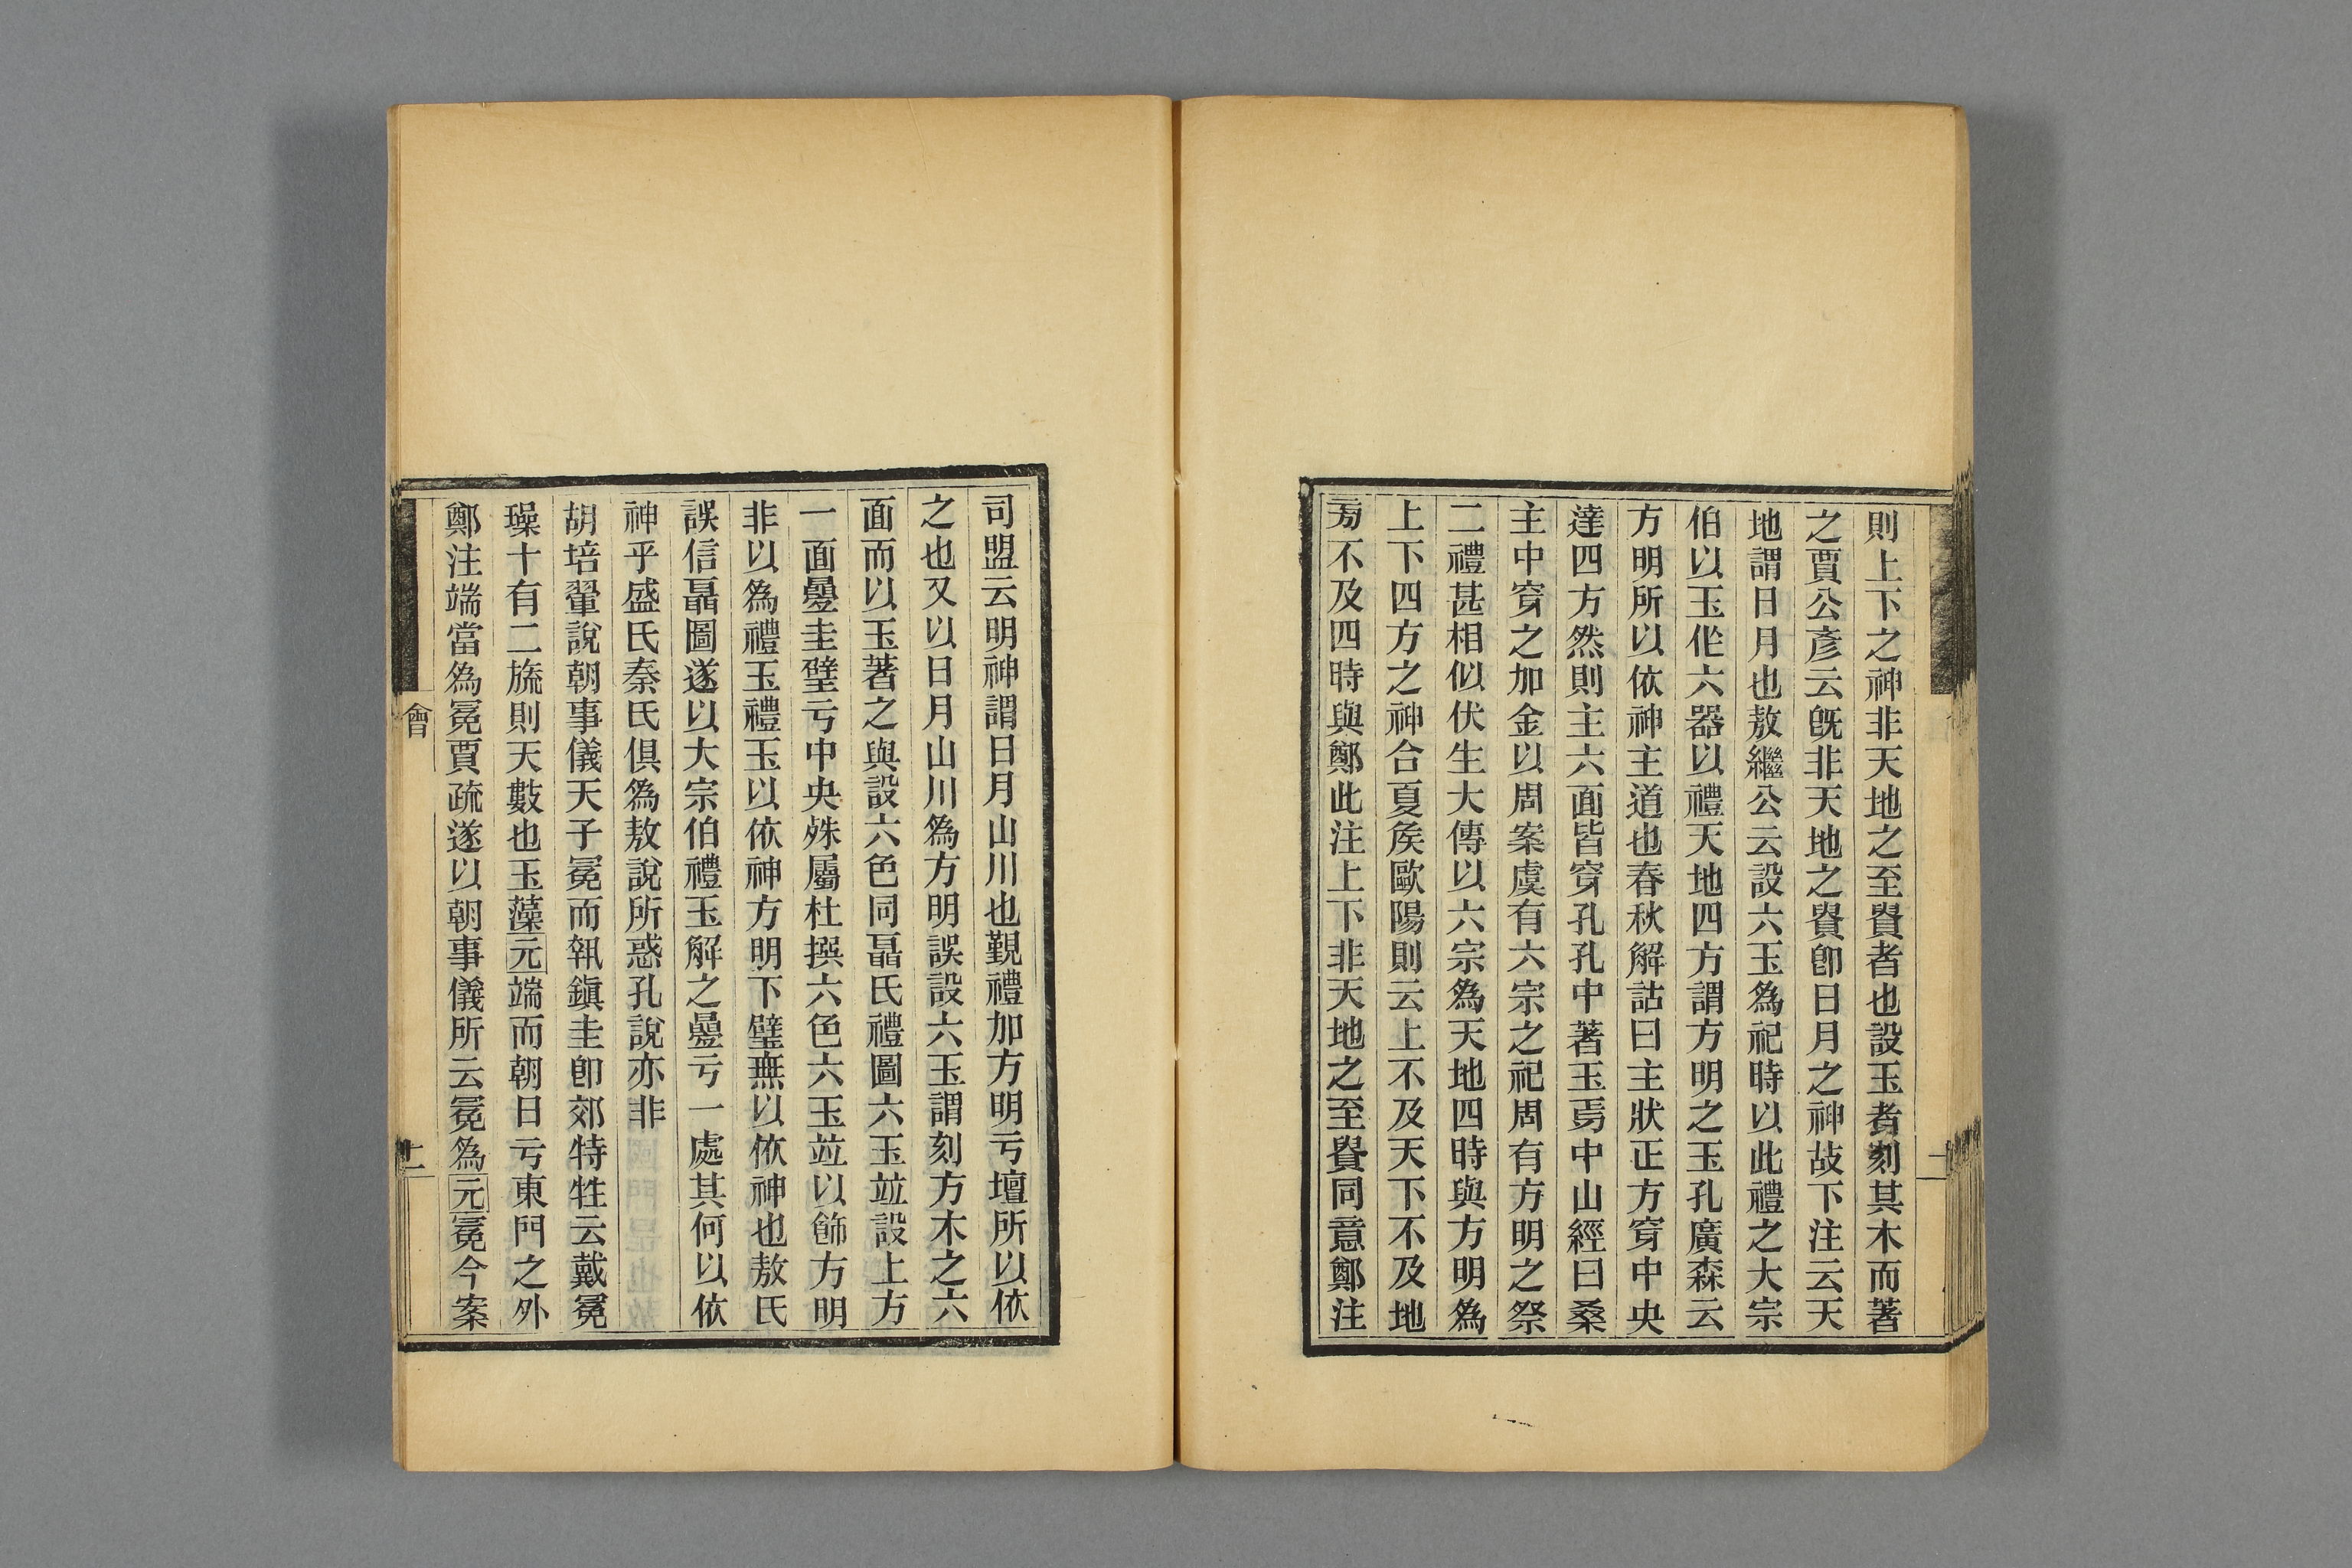 則上下之神非天地之至貴者也設玉者刻其木而著
之賈公彥云旣非天地之貴卽日月之神故下注云天
地謂日月也敖繼公云設六玉爲祀時以此禮之大宗
伯以玉作六器以禮天地四方謂方明之玉孔廣森云
方明所以依神主道也春秋解詁曰主狀正方穿中央
達四方然則主六面皆穿孔孔中著玉焉中山經曰桑
主中穿之加金以周案虞有六宗之祀周有方明之祭
二禮甚相似伏生大傳以六宗爲天地四時與方明爲
上下四方之神合夏矦歐陽則云上不及天下不及地
㫄不及四時與鄭此注上下非天地之至貴同意鄭注
司盟云明神謂日月山川也覲禮加方明亏壇所以依
之也又以日月山川爲方明誤設六玉謂刻方木之六
面而以玉著之與設六色同聶氏禮圖六玉竝設上方
一面曡圭璧亏中央殊屬杜撰六色六玉竝以飾方明
非以爲禮玉禮玉以依神方明下璧無以依神也敖氏
誤信聶圖遂以大宗伯禮玉解之曡亏一處其何以依
神乎盛氏秦氏俱爲敖說所惑孔說亦非
胡培翬說朝事儀天子冕而執鎭圭卽郊特牲云戴冕
璪十有二旒則天數也玉藻元端而朝日亏東門之外
鄭注端當爲冕賈疏遂以朝事儀所云冕爲元冕今案
會
十一